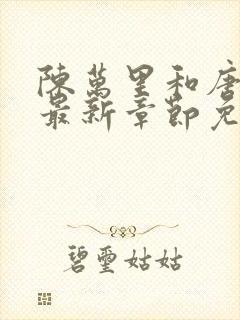 陳萬里和唐
最新章節免
碧璽姑姑